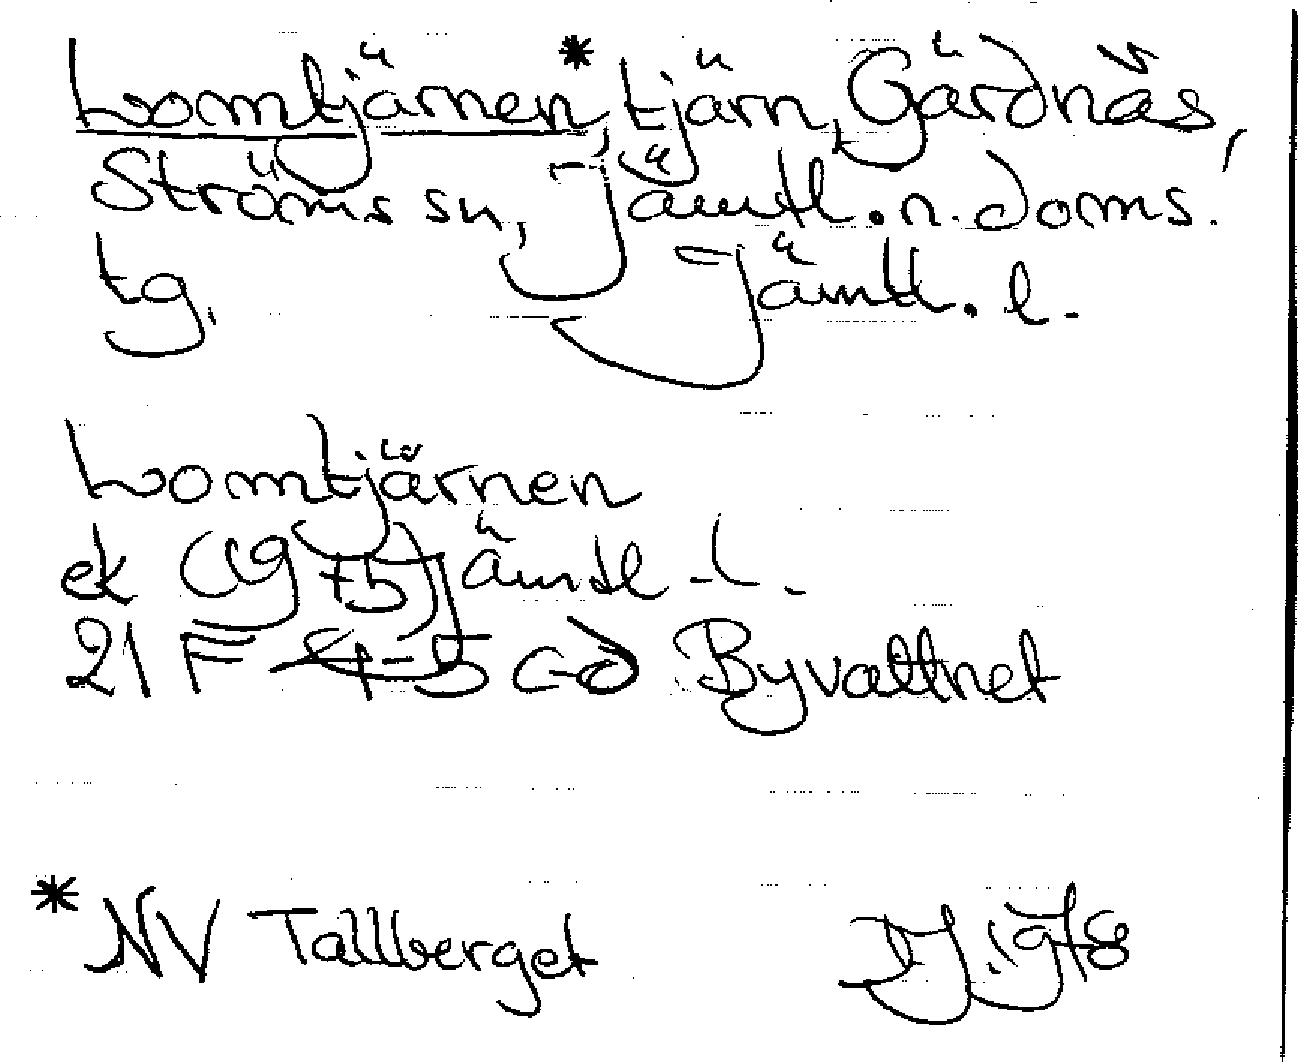 Lomtjärnen,* tjärn, Gärdnäs,
Ströms sn, Jämtl. n. doms.
tg, Jämtl. l.
Lomtjärnen
ek (19 75) Jämtl. l.
21 F 4-5 c-d Byvattnet
* NV Tallberget 1978